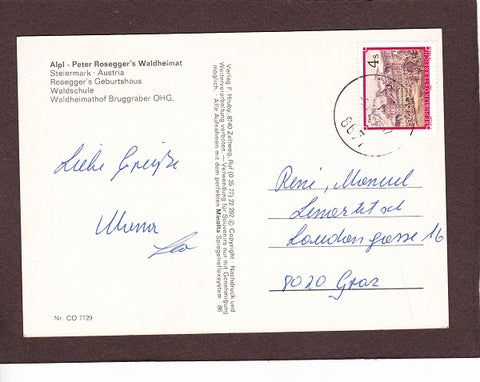 Alpl - Peter Rosegger's Waldheimat
Steiermark - Austria
Rosegger's Geburtshaus
Waldschule
Waldheimathof Bruggraber OHG.
Liebe Grüße
Leo
Verlag F. Hruby, 8740 Zeltweg, Ruf (0 35 77) 22 292 © Copyright - Nachdruck und
Weiterverarbeitung verboten - Verwendung für Souvenirs nur mit Genehmigung
möglich. - Alle Aufnahmen mit dem perfekten Minolta Spiegelreflexsystem - 86
4 s
8671
René, Manuel
Lenartitsch
Londongasse 16
8020 Graz
Nr. CO 7729